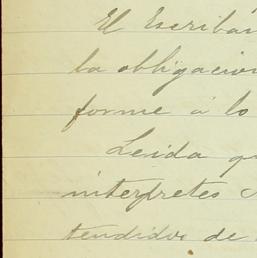 El Escriban
la obligacion
forme á lo
Leida q
interpretes
tendidos de